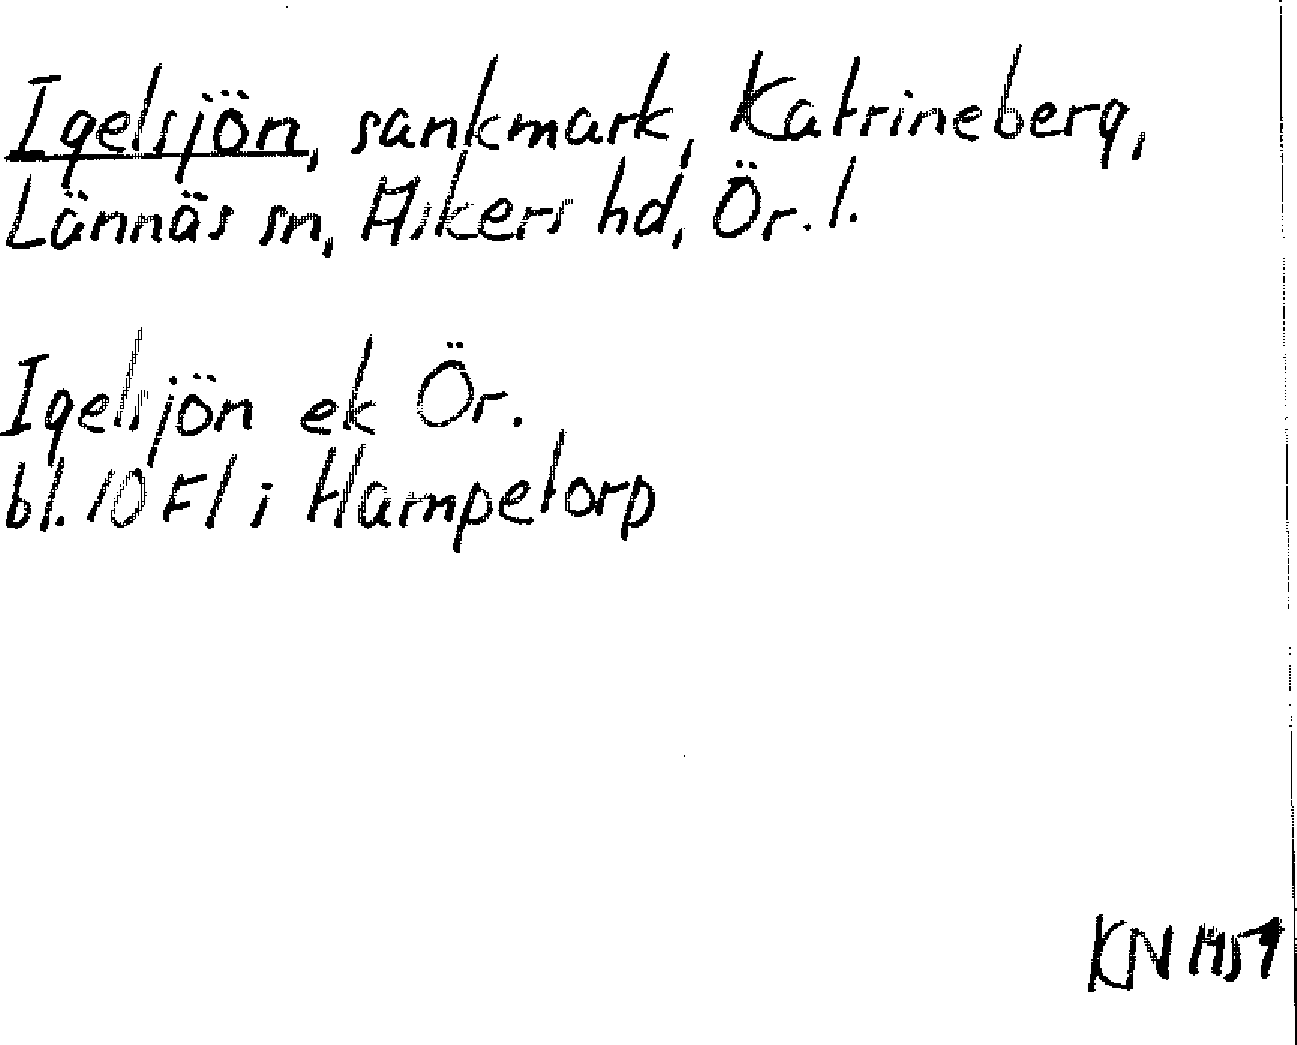 Igelsjön, sankmark, Katrineberg,
Lännäs sn, Askers hd, Ör. l.
Igelsjön ek Ör.
bl. 10 F1 i Hampetorp
KN